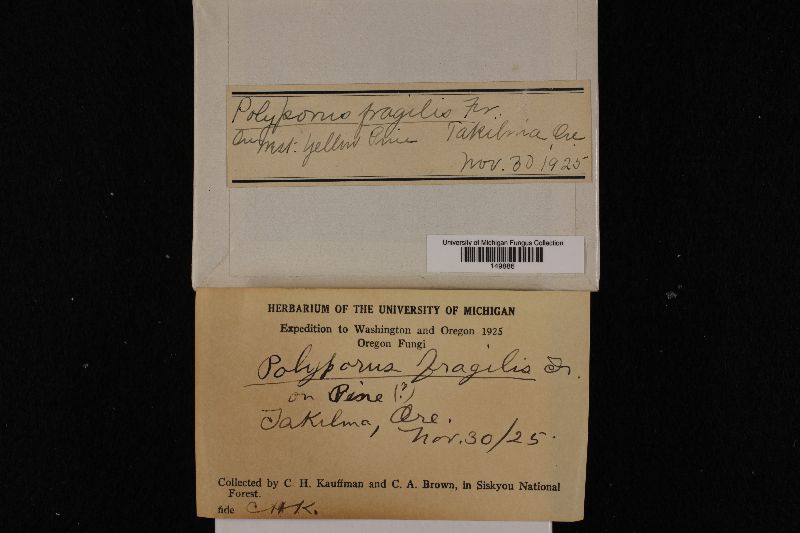 Polyporus fragilis Fr.
On Mst: Yellow Pine Takilma, Ore
Nov. 30, 1925
University of Michigan Fungus Collection
149886
HERBARIUM OF THE UNIVERSITY OF MICHIGAN
Expedition to Washington and Oregon 1925
Oregon Fungi
Polyporus fragilis Fr.
on Pine (?)
Takilma, Ore.
Nov. 30/25.
Collected by C H. Kauffman and C. A. Brown, in Siskyou National
Forest.
fide C H K.